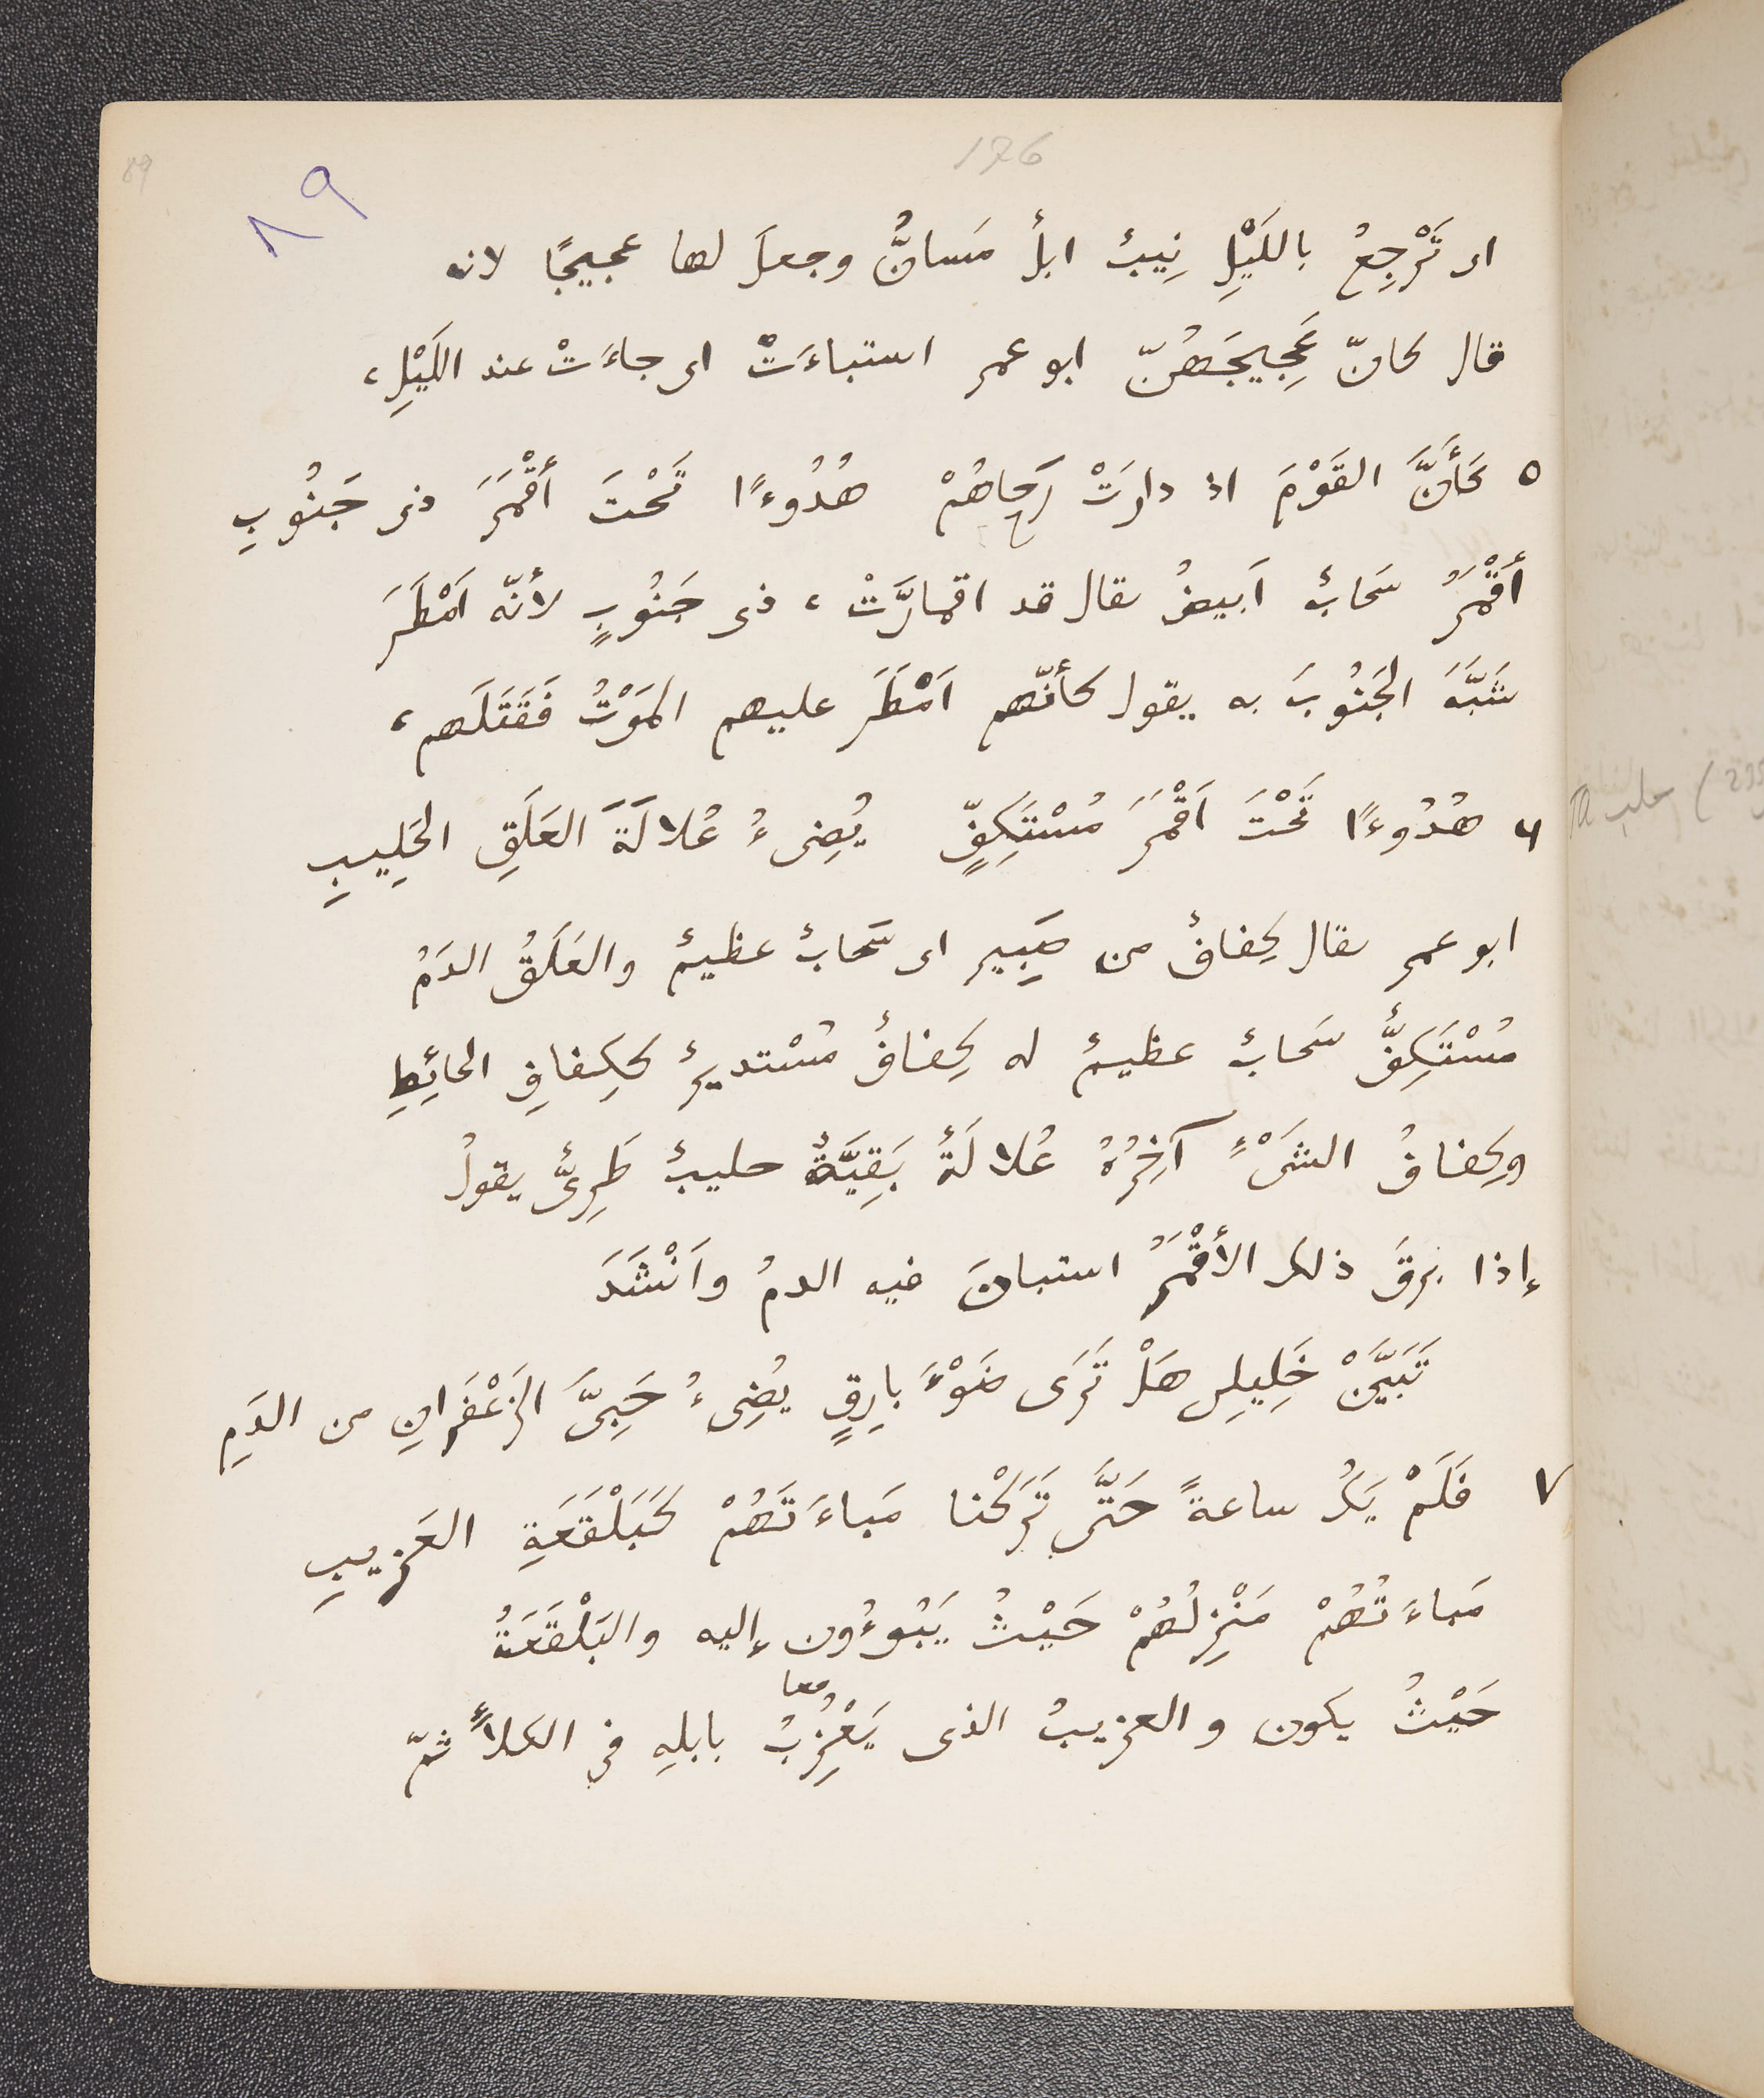 176
89
٨٩
اى تَرْجِعُ بالليْلِ نِيبٌ ابلٌ مَسانٌّ وجعلَ لها عجيجًا لانه
قال كانّ عَجِيجَهُنّ ابو عمر استباءَتْ اى جاءَتْ عند اللَيْلِ ،
٥ كَأَنَّ القَوْمَ اذ دارَتْ رَحاهُمْ هُدُوءًا تَحْتَ أَقْمَرَ ذى جَنُوبِ
أَقْمَرُ سَحابٌ اَبيضُ يقال قد اقمارَّتْ ، ذى جَنُوبٍ لأنّه اَمْطَرَ
شَبَّهَ الجَنُوبَ به يقول كأنّهم اَمْطَرَ عليهم المَوْتُ فَقَتَلَهم ،
٦ هُدُوءًا تَحْتَ اَقْمَرَ مُسْتَكِفٍّ يُضِىءُ عُلالَةَ العَلَقِ الحَلِيبِ
ابو عمر يقال كِفافٌ من صَبِير اى سَحابٌ عظيمٌ والعَلَقُ الدَمُ
مُسْتَكِفٌّ سَحابٌ عظيمٌ له كِفافٌ مُسْتديرٌ ككِفافِ الحائِطِ
وكِفافُ الشَىْءِ آخِرُهُ عُلالَةٌ بَقِيَّةٌ حليبٌ طَرِىٌّ يقولُ
إذا برقَ ذلك الأقْمَرُ استبانَ فيه الدمُ واَنْشَدَ
تَبَيَّنْ خَلِيلِى هَلْ تَرَى ضَوْءَ بارِقٍ يُضِىءُ حَبِىَّ الزَعْفَرانِ من الدَمِ
٧ فَلَمْ يَكُ ساعةً حَتَّى تَرَكْنا مَباءَتَهُمْ كَبَلْقَعَةِ العَزِيبِ
مَباءَتُهُمْ مَنْزِلُهُمْ حَيْثُ يَبُوءُون إليه والبَلْقَعَةُ
حَيْثُ يكون والعزيبُ الذى يَعْزُِبُ بابلِهِ فى الكلأ ثمّ
معا
حليب